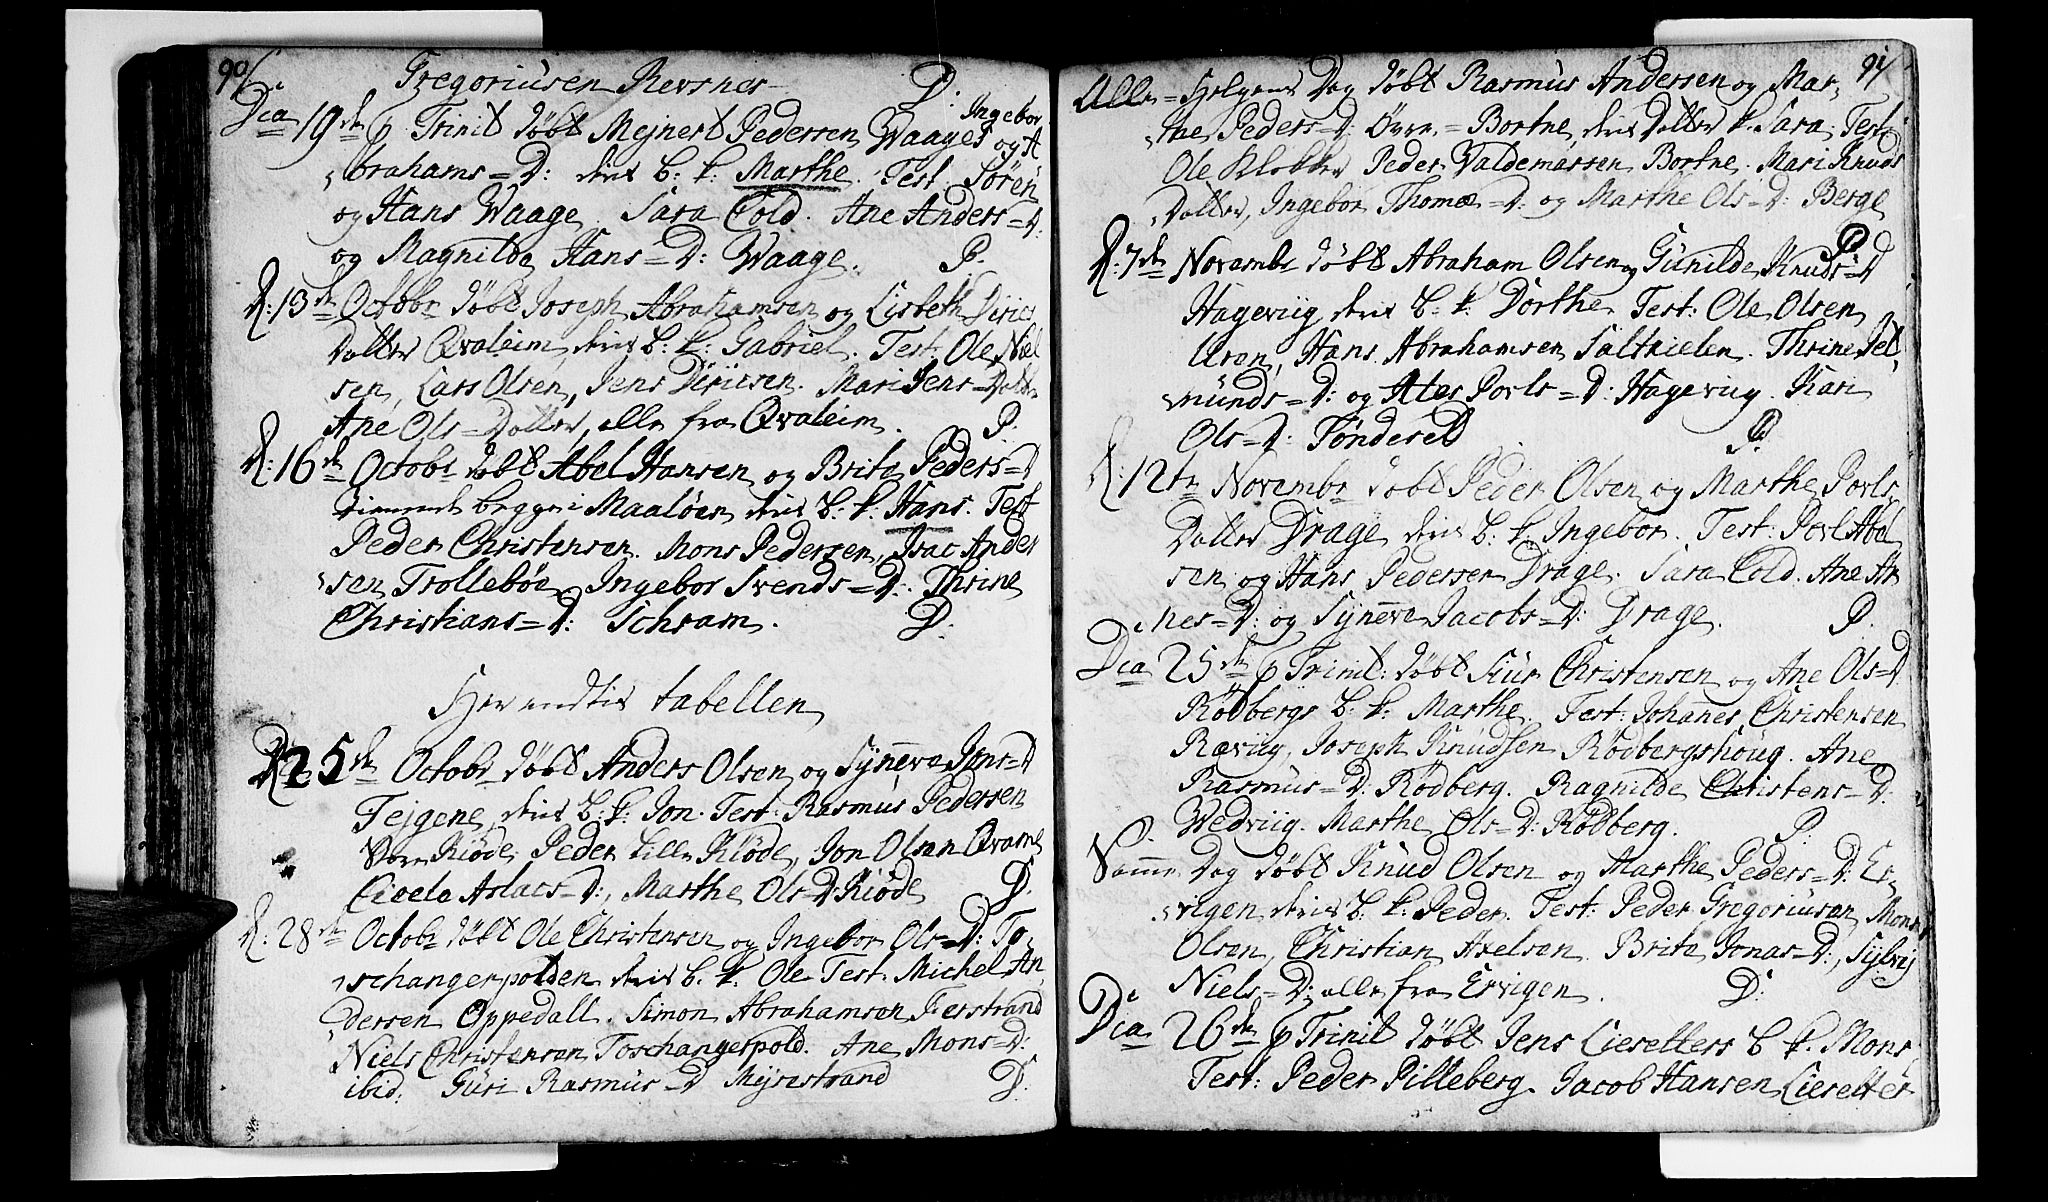 90/
Gregoriusen Revsnes D:
Dca 19de p Trinit døbt Mejnert Pedersen Waage og Ingebor A
brahams=D: deris b: k: Marthe. Test. Søren
og Hans Waage. Sara Cold. Ane Anders=D:
og Magnilda Hans=D: Waage. P.
D: 13de Octobr døbt Joseph Abrahamsen og Lisbeth Dirics
Datter Qvaleim, deris b: k: Gabriel. Test. Ole Niel
sen, Lars Olsen, Jens Diricsen. Mari Jens=Datter
Ane Ols=Datter, alle fra Qvaleim. P.
D: 16de Octobr døbt Abel Hansen og Brite Peders=D
tienende begge i Maaløen deris b: k: Hans. Test
Peder Christensen. Mons Pedersen, Isac Ander
sen Trollebøe. Ingebor Svends=D: Thrine
Christians=D: Schram. D:
Her endtes tabellen
D: 25de Octobr døbt Anders Olsen og Synneva Jens=D
Fejgene, deris b: k: Jon. Test: Rasmus Pedersen
Kiøde, Peder Lille Kiøde, Jon Olsen Qvame
Ciecela Aslacs=D:, Marthe Ols=D: Kiøde D:
D: 28de Octobr døbt Ole Christensen og Ingebor Ols=D: To
schangerpolden deris b: k: Ole Test. Michel An
dersen Oppedall. Simon Abrahamsen Fierstrand
Niels Christensen Toschangerpold. Ane Mons=D:
ibid. Guri Rasmus=D Myrestrand D:
91/
Alle=Helgens Dag døbt Rasmus Andersen og Mar
the Peders=D: Øvre=Bortne, deris Datter k. Sara. Test.
Ole Klokker Peder Valdemarsen Bortne. Mari Knuds
Datter, Ingebor Thomæ=D: og Marthe Ols=D: Berge
P
D: 7de Novembr døbt Abraham Olsen og Gunilde Knuds=D
Hageviig deris b: k: Dorthe. Test: Ole Olsen
Aron, Hans Abrahamsen Saltskielen. Thrine Sel
munds=D: og Ales Povls=D: Hageviig. Kari
Ols=D: Søndereid P.
D: 12te Novembr døbt Peder Olsen og Marthe Povls
Datter Drage deris b: k: Ingebor. Test: Povl Abel
sen og Hans Pedersen Drage. Sara Cold. Ane Ar
nes=D: og Synneva Jacobs=D: Drage. P.
Dca 25de p Trinit: døbt Siur Christensen og Ane Ols=D
Rødbergs b: k: Marthe. Test: Johannes Christensen
Ræviig, Joseph Knudsen Rødbergshoug. Ane
Rasmus=D: Rødberg. Ragnilde Christens=D:
Wedviig. Marthe Ols=D: Rødberg. P.
Samme Dag døbt Knud Olsen og Marthe Peders=D: Er
vigen deris b: k: Peder. Test: Peder Gregoriusen, Mons
Olsen, Christian Axelsen. Brite Jonas=D:, Sylvej
Niels=D: alle fra Ervigen. D:
Dca 26de p Trinit døbt Jens Cieselters b k: Mons
Test: Peder Pilleberg. Jacob Hansen Cieselter